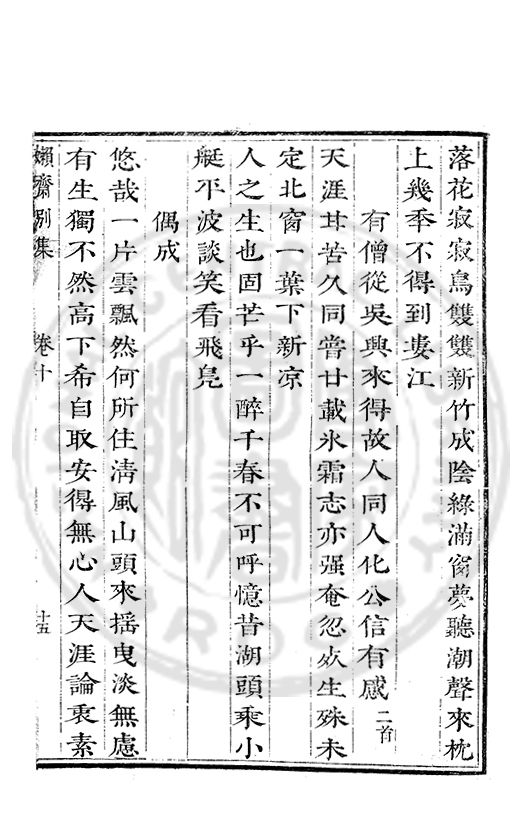 落花寂寂鳥雙雙新竹成陰綠滿窗夢聽潮聲來枕
上幾季不得到婁江
有僧從吳興來得故人同人化公信有感二首
天涯苷苦久同嘗廿載氷霜志亦强奄忽𣦸生殊未
定北窗一葉下新凉
人之生也固芒乎一醉千春不可呼憶昔湖頭乘小
艇平波談笑看飛鳧
偶成
悠哉一片雲飄然何所住清風山頭來摇曳淡無慮
有生獨不然高下希自取安得無心人天涯論衷素
嬾齋别集
卷十
十五